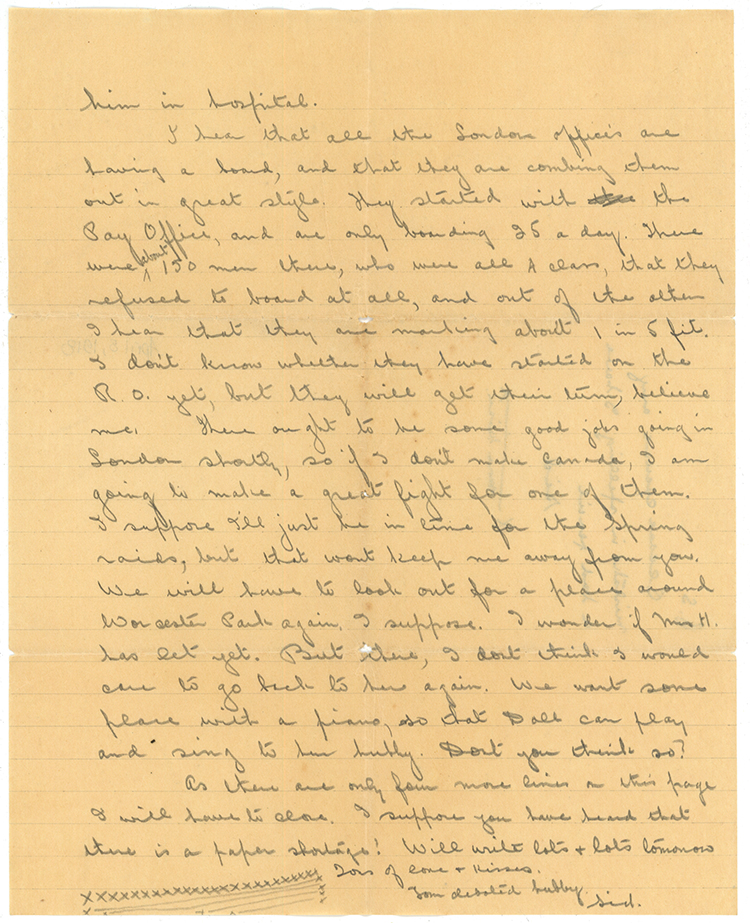 him in hospital.
I hear that all the London offices are
having a board, and that they are combing them
out in great style. They started with the the
Pay Office, and are only boarding 25 a day. There
were about 150 men there, who were all A class, that they
refused to board at all, and out of the others
I hear that they are marking about 1 in 5 fit.
I don't know whether they have started on the
R.O. yet, but they will get their turn, believe
me. There ought to be some good jobs going in
London shortly, so if I don't make Canada, I am
going to make a great fight for one of them.
I suppose I'll just be in time for the Spring
raids, but that wont keep me away from you.
We will have to look out for a place around
Worcester Park again, I suppose. I wonder if Mrs H.
has let yet. But there, I dont think I would
care to go back to her again. We want some
place with a piano, so that Doll can play
and sing to her hubby. Dont you think so?
As there are only four more lines on this page
I will have to close. I suppose you have heard that
there is a paper shortage! Will write lots + lots tomorrow
Tons of love + kisses.
Your devoted hubby
Sid.
xxxxxxxxxxxxxxxxxxxx